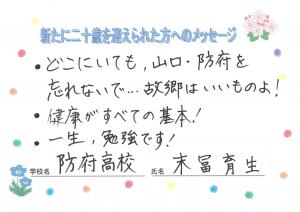 新たに二十歳を迎えられた方へのメッセージ
• どこにいても,山口・防府を
忘れないで…故郷はいいものよ!
• 健康がすべての基本!
• 一生,勉強です!
学校名 防府高校 氏名 末冨育生